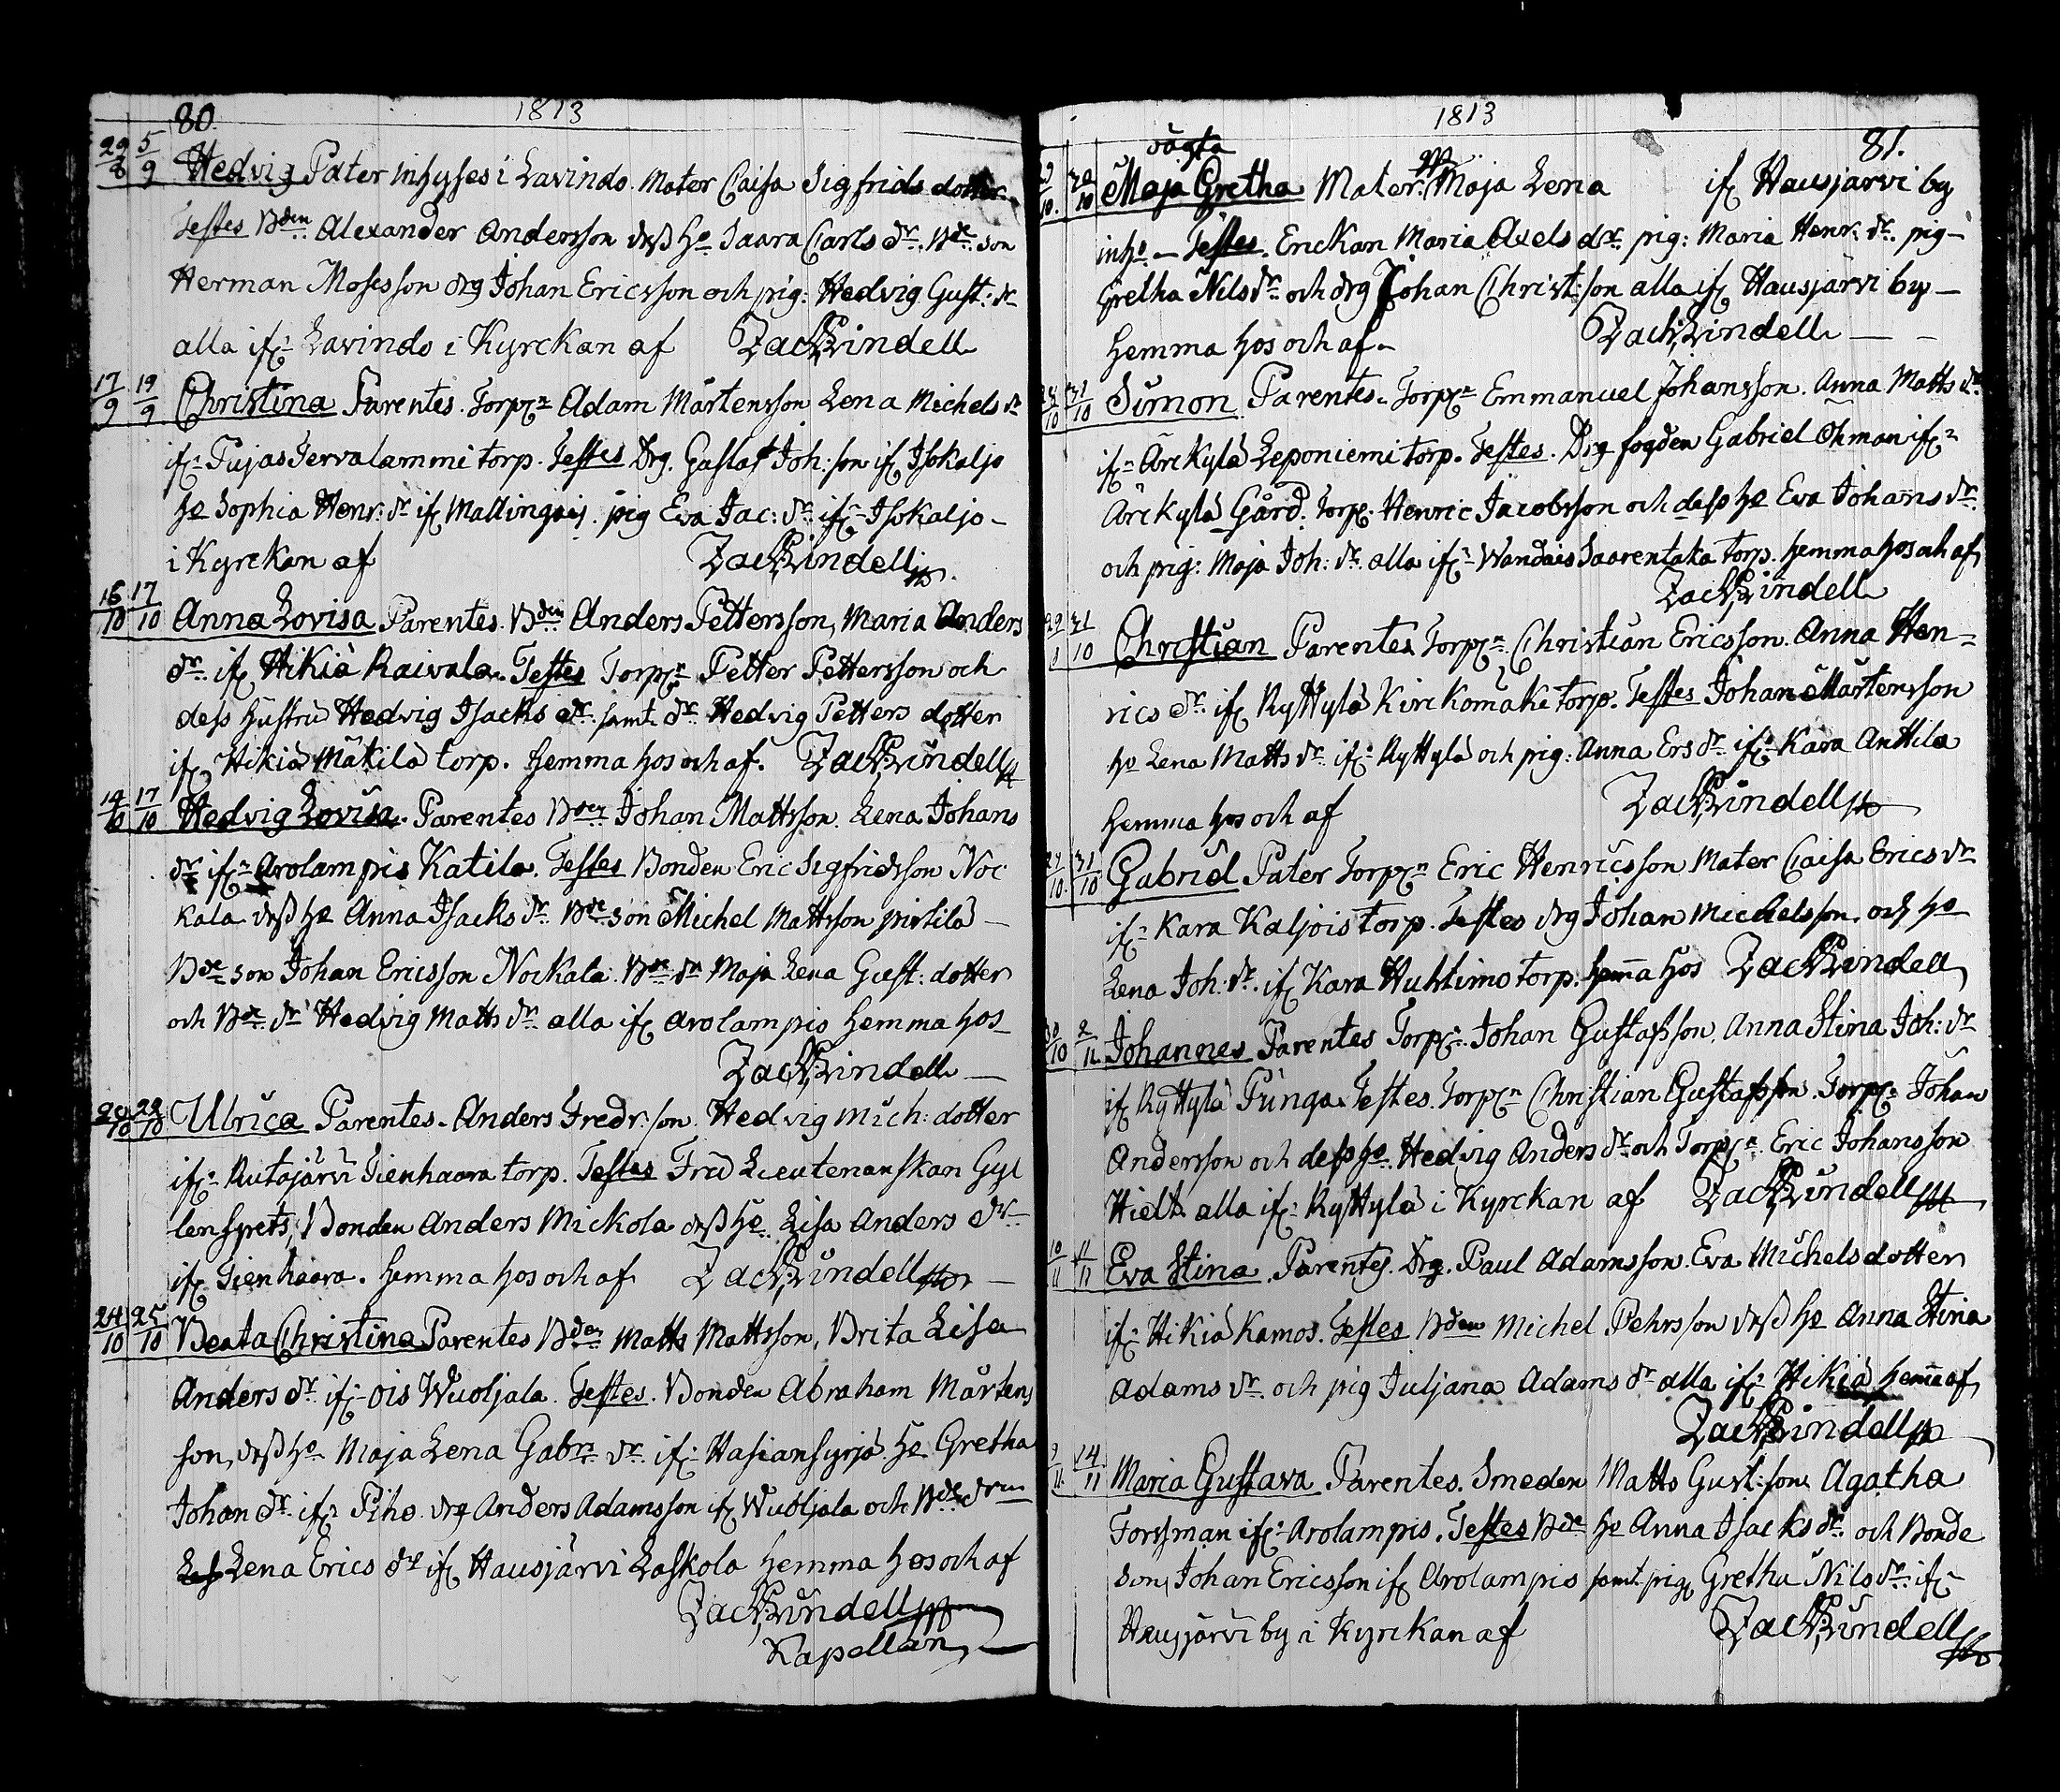 80. 1813
29/8 5/9 Hedvig Pater inhyses i Lavindo. Mater Caisa Sigfrids dotter.
Testes Bden Alexander Andersson dess ho Saara Carls dr. Bde son
Herman Mosesson drg Johan Ericsson och pig: Hedvig Gust: dr
alla ifr: Lavindo i Kyrckan af Zach. Lindell
17/9 19/9 Christina Parentes. Torpn Adam Mårtensson Lena Michels dr
ifr: Pujas Tervalammi torp. Testes Drg. Gustaf Joh: son ifr Isokaljo
ho Sophia Henr: dr ifr Mallinqais. pig Eva Jac: dr ifr: Isokaljo -
i Kyrckan af Zach. Lindell
16/10 17/10 Anna Lovisa Parentes. Bden Anders Pettersson, Maria Anders
dr. ifr Hikiä Raivala. Testes Torpn Petter Pettersson och
dess hustru Hedvig Isacks dr. samt dr. Hedvig Petters dotter
ifr Hikiä Mäkilä torp. hemma hos och af. Zach. Lindell
14/10 17/10 Hedvig Lovisa. Parentes Bden Johan Mattsson. Lena Johans
dr ifr: Arolampis Katila. Testes Bonden Eric Sigfridsson Noc
kala dess ho Anna Isacks dr. Bde son Michel Mattsson pirtilä -
Bde son Johan Ericsson Nockala. Bde dr Maja Lena Gust: dotter
och Bde dr Hedvig Matts dr. alla ifr Arolampis hemma hos -
Zach. Lindell
20/10 22/10 Ulrica Parentes. Anders Fredr: son. Hedvig Mich: dotter
ifr: Rutajärvi Tienhaara torp. Testes Fru Lieutenanskan Gyl
lenspets, Bonden Anders Mickola dess ho. Lisa Anders dr
ifr Tienhaara. hemma hos och af Zach. Lindell
24/10 25/10 Beata Christina Parentes Bden Matts Mattsson, Brita Lisa
Anders dr. ifr: Ois Wuoljala. Testes. Bonden Abraham Mårtens
son, dess ho Maja Lena Gabr: dr. ifr: Hasiansyrjä ho Gretha
Johan dr. ifr: Piho. drg Anders Adamsson ifr Wuoljala och Bde drn
Lena Erics dr ifr Hausjärvi Laskola hemma hos och af
Zach. Lindell
Kapellan
1813 81.
oägta
/10. /10 Maja Gretha Mater: Maja Lena ifr Hausjärvi by
inho - Testes. Enckan Maria Axels dr. pig: Maria Henr: dr. pig -
Gretha Nils dr. och drg Johan Christ: son alla ifr Hausjärvi by -
hemma hos och af - Zach. Lindell
/10 31/10 Simon. Parentes. Torpn Emmanuel Johansson. Anna Matts dr.
ifr: Ärckylä Leponiemi torp. Testes. Drg fogden Gabriel Öhman ifr:
Ärckylä Gård. Torp: Henric Jacobsson och dess ho Eva Johans dr.
och pig: Maja Joh: dr. alla ifr: Wandais Saarentaka torp. hemma hos och af
Zach. Lindell
29/ 31/10 Christian Parentes Torpn. Christian Ericsson. Anna Hen=
rics dr. ifr Ryttylä Kirckomäki torp. Testes Johan Mårtensson
ho Lena Matts dr. ifr: Ryttylä och pig: Anna Ers dr. ifr: Kara Anttila
hemma hos och af Zach. Lindell
/10. 31/10 Gabriel Pater Torpn Eric Henricsson Mater Caisa Erics dr
ifr: Kara Kaljois torp. Testes drg Johan Michelsson. och ho
Lena Joh: dr. ifr Kara Huhtimo torp. hema hos Zach. Lindell
30/10 2/11. Johannes Parentes Torpn. Johan Gustafsson. Anna Stina Joh: dr
ifr Ryttylä Punga. Testes. Torpn Christian Gustafsson. Torpn: Johan
Andersson och dess ho. Hedvig Anders dr. och Torpn. Eric Johansson
Hielt. alla ifr: Ryttylä i Kyrckan af Zach. Lindell
10/11 11/11 Eva Stina. Parentes. Drg. Paul Adamsson. Eva Michelsdotter
ifr: Hikiä Kamos. Testes Bden Michel Pehrsson dess ho Anna Stina
Adams dr. och pig Juljana Adams dr alla ifr: Hikiä hema af
Zach. Lindell
9/11. 14/11 Maria Gustava. Parentes. Smeden Matts Gust: son Agatha
Forssman ifr: Arolampis. Testes Bde ho Anna Isacks dr. och Bonde
son, Johan Ericsson ifr Arolampis samt pig Gretha Nils dr. ifr
Hausjärvi by i Kyrckan af Zach. Lindell